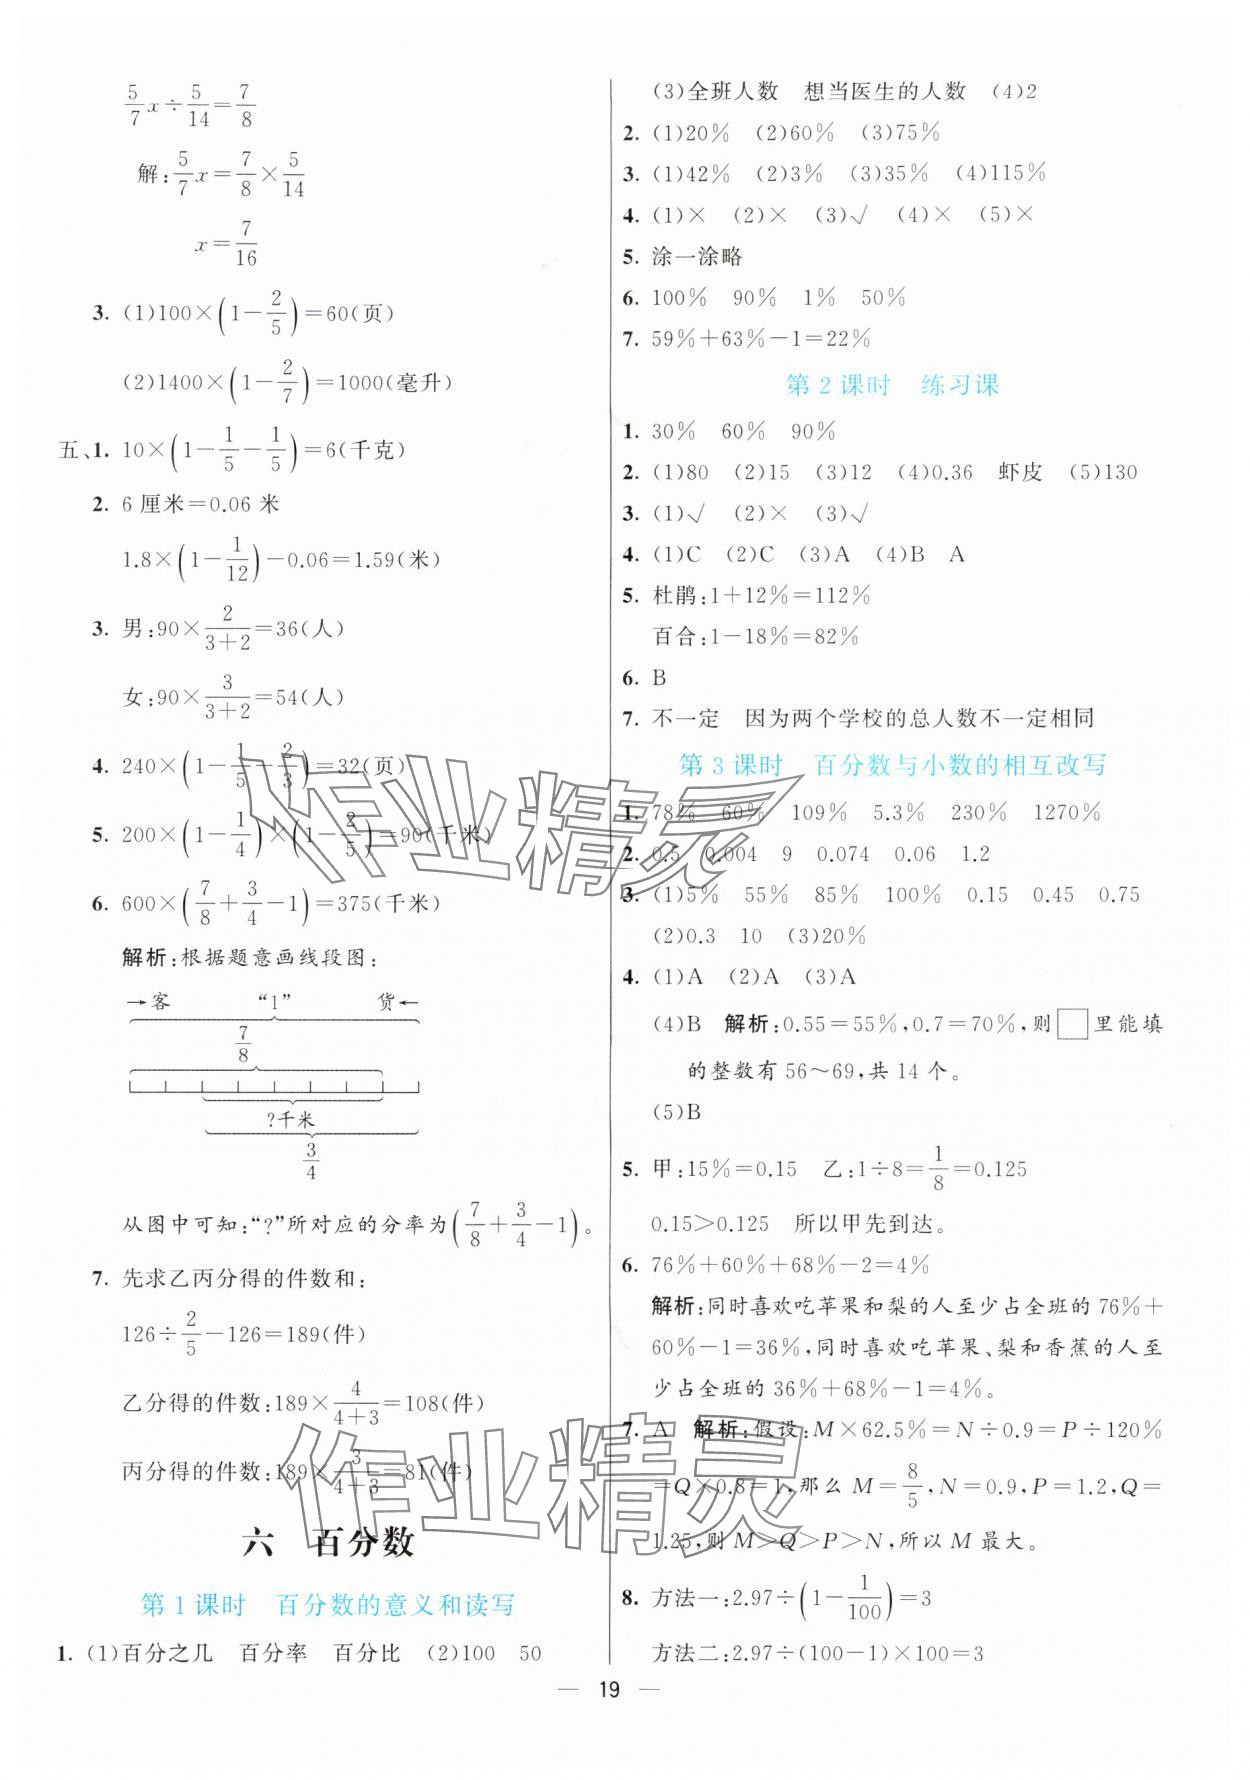 5/7 x÷5/14=7/8
解:5/7 x=7/8×5/14
x=7/16
3. (1)100×(1-2/5)=60(页)
(2)1400×(1-2/7)=1000(毫升)
五、1. 10×(1-1/5-1/5)=6(千克)
2. 6厘米=0.06米
1.8×(1-1/12)-0.06=1.59(米)
3. 男:90×2/(3+2)=36(人)
女:90×3/(3+2)=54(人)
4. 240×(1-1/5-2/3)=32(页)
5. 200×(1-1/4)×(1-2/5)=90(千米)
6. 600×(7/8+3/4-1)=375(千米)
解析:根据题意画线段图:
→客 “1” 货←
7/8
?千米
3/4
从图中可知:“?”所对应的分率为(7/8+3/4-1)。
7. 先求乙丙分得的件数和:
126÷2/5-126=189(件)
乙分得的件数:189×4/(4+3)=108(件)
丙分得的件数:189×3/(4+3)=81(件)
六 百分数
第1课时 百分数的意义和读写
1. (1)百分之几 百分率 百分比 (2)100 50
(3)全班人数 想当医生的人数 (4)2
2. (1)20% (2)60% (3)75%
3. (1)42% (2)3% (3)35% (4)115%
4. (1)× (2)× (3)√ (4)× (5)×
5. 涂一涂略
6. 100% 90% 1% 50%
7. 59%+63%-1=22%
第2课时 练习课
1. 30% 60% 90%
2. (1)80 (2)15 (3)12 (4)0.36 虾皮 (5)130
3. (1)√ (2)× (3)√
4. (1)C (2)C (3)A (4)B A
5. 杜鹃:1+12%=112%
百合:1-18%=82%
6. B
7. 不一定 因为两个学校的总人数不一定相同
第3课时 百分数与小数的相互改写
1. 78% 60% 109% 5.3% 230% 1270%
2. 0.5 0.004 9 0.074 0.06 1.2
3. (1)5% 55% 85% 100% 0.15 0.45 0.75
(2)0.3 10 (3)20%
4. (1)A (2)A (3)A
(4)B 解析:0.55=55%,0.7=70%,则□里能填
的整数有56~69,共14个。
(5)B
5. 甲:15%=0.15 乙:1÷8=1/8=0.125
0.15>0.125 所以甲先到达。
6. 76%+60%+68%-2=4%
解析:同时喜欢吃苹果和梨的人至少占全班的76%+
60%-1=36%,同时喜欢吃苹果、梨和香蕉的人至
少占全班的36%+68%-1=4%。
7. A 解析:假设:M×62.5%=N÷0.9=P÷120%
=Q×0.8=1,那么M=8/5,N=0.9,P=1.2,Q=
1.25,则M>Q>P>N,所以M最大。
8. 方法一:2.97÷(1-1/100)=3
方法二:2.97÷(100-1)×100=3
— 19 —
作业精灵
作业精灵